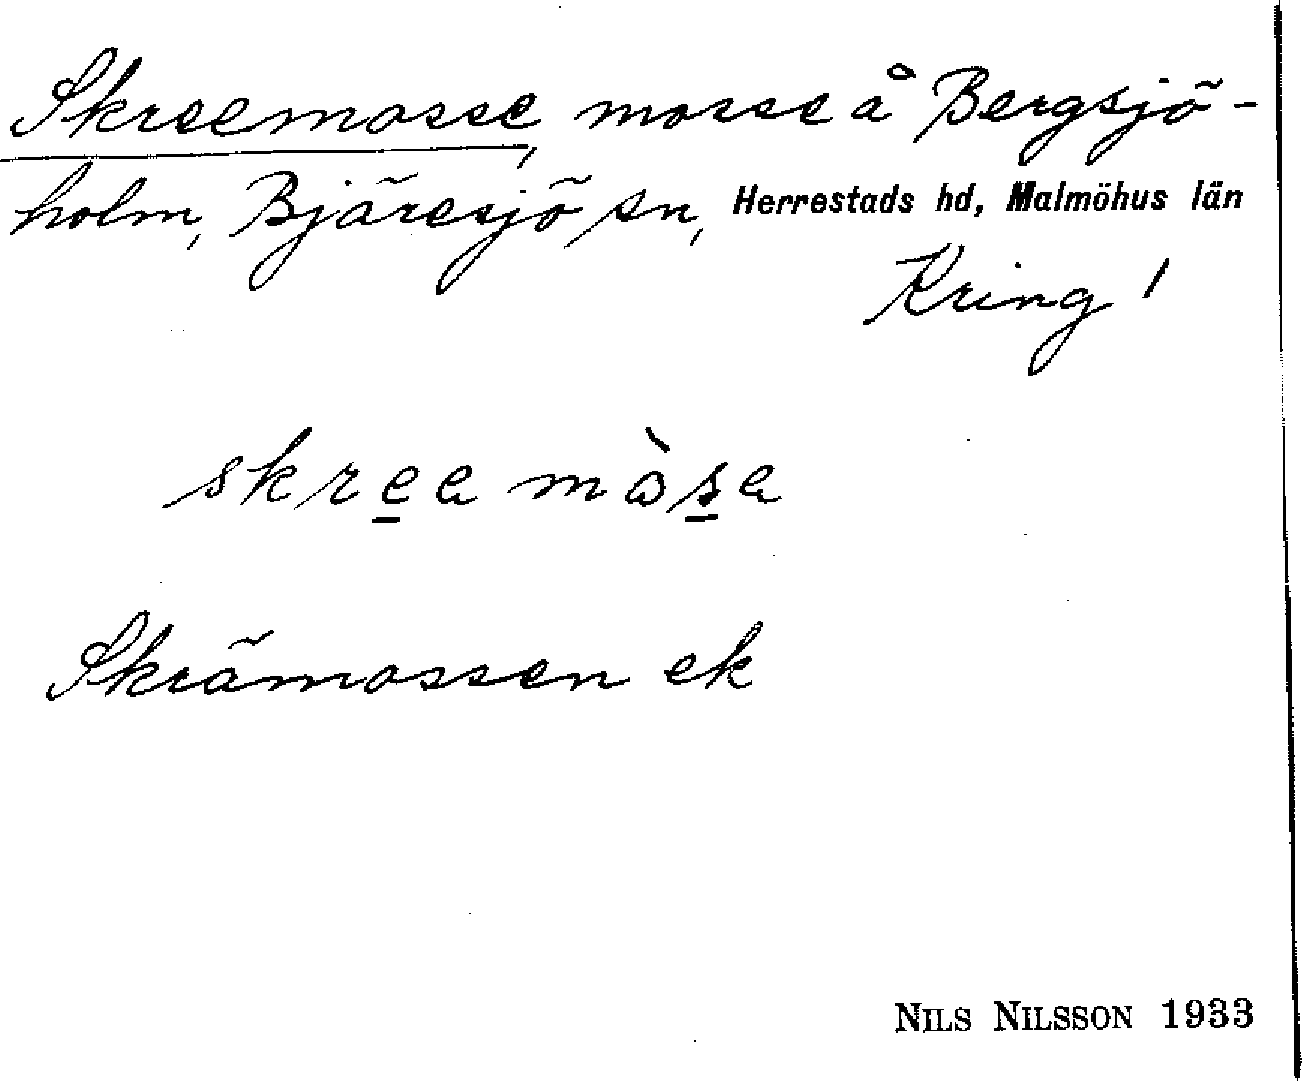 Skreemosse, mosse å Bergsjö-
holm, Bjäresjö sn, Herrestads hd, Malmöhus län
Kring!
skrea mòsa
Skrämossen ek
NILS NILSSON 1933